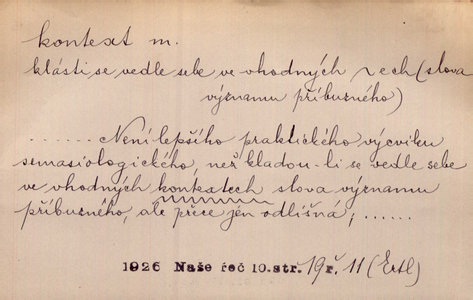 kontext m.
klásti se vedle sebe ve vhodných ~ech (slova
významu příbuzného)
....... Není lepšího praktického výcviku
semasiologického, než kladou-li se vedle sebe
ve vhodných kontextech slova významu
příbuzného, ale přece jen odlišná; ......
1926 Naše řeč 10. str. 19 ř. 11 (Ertl)